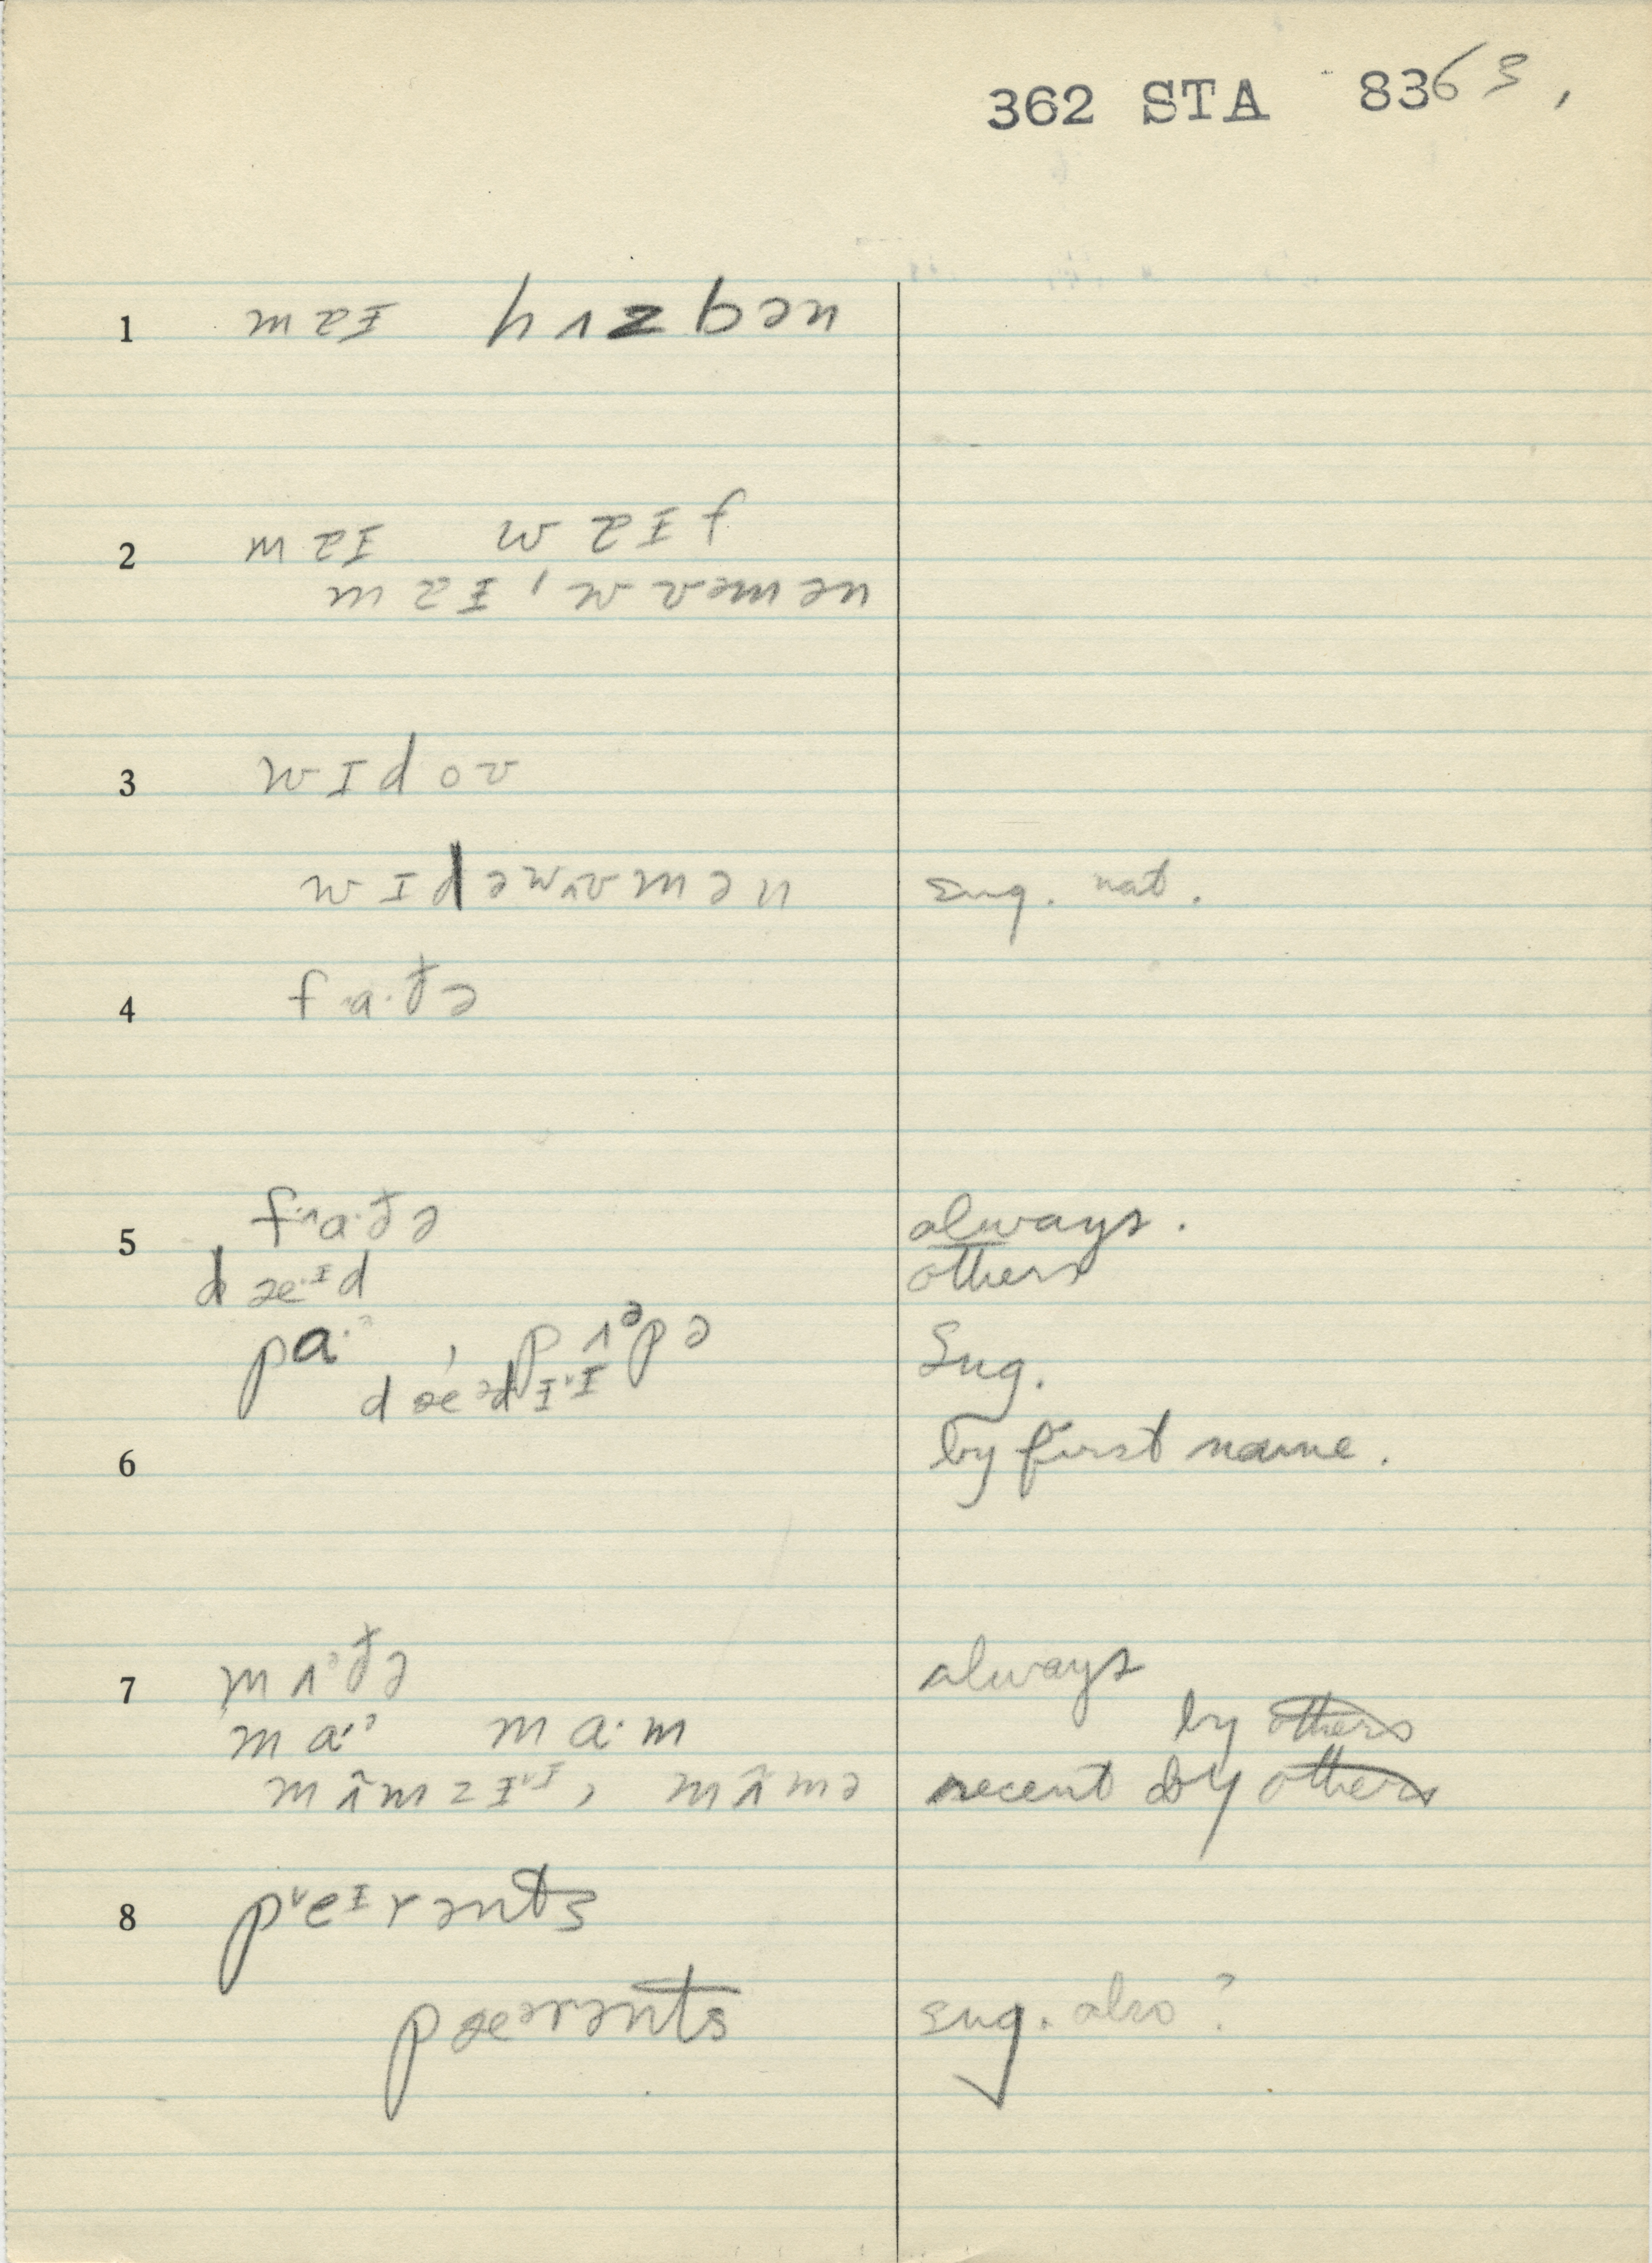 362 STA 8363,
1 maɪ hʌzbən
2 maɪ waɪf
maɪ, wʊmən
3 wɪdoʊ
wɪdəwʊmən sug. nat.
4 fa·ðə
5 fa·ðə always.
dæ·ɪd others
pa·ə, pʌəpə sug.
dæədɪ
6 by first name.
7 mʌəðə always
ma·ə ma·m by others
mʌ̃mzɪ, mʌ̃mə recent by others
8 peɪrənts
pæərənts sug. also?